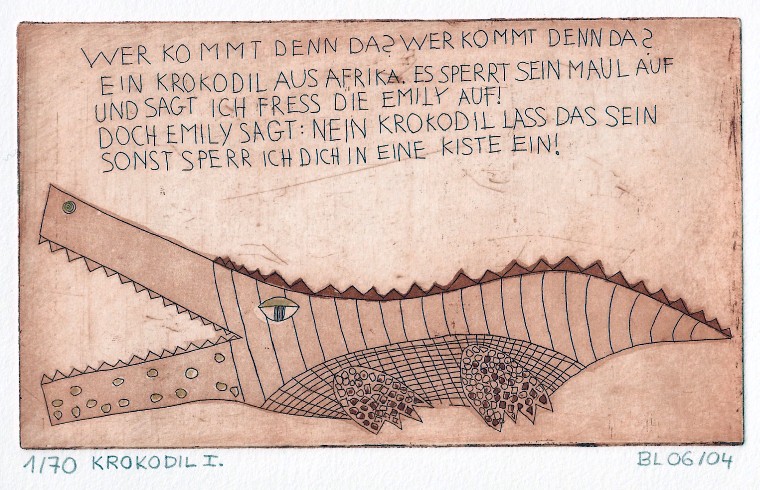 WER KOMMT DENN DA? WER KOMMT DENN DA?
EIN KROKODIL AUS AFRIKA. ES SPERRT SEIN MAUL AUF
UND SAGT ICH FRESS DIE EMILY AUF!
DOCH EMILY SAGT: NEIN KROKODIL LASS DAS SEIN
SONST SPERR ICH DICH IN EINE KISTE EIN!
1/70 KROKODIL I. BL 06/04